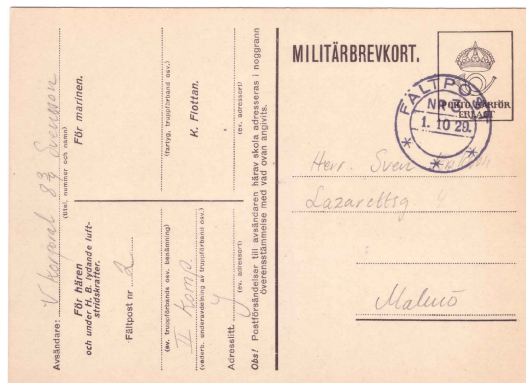 Avsändare: V Korpral 83 Svensson
(titel, nummer och namn)
För hären
och under H. B. lydande luft-
stridskrafter.
Fältpost nr 2
(ev. truppförbands osv. benämning)
II Komp.
(vederb. underavdelning av truppförband osv.)
Adresslitt. y
(ev. adressort)
För marinen.
(fartyg, truppförband osv.)
K. Flottan.
(ev. adressort)
Obs! Postförsändelser till avsändaren härav skola adresseras i noggrann
överensstämmelse med vad ovan angivits.
MILITÄRBREVKORT.
PORTO VARFÖR
ERLAGT
FÄLTPOST
NR
1. 10 29.
Herr. Sven
Lazarettsg.
Malmö